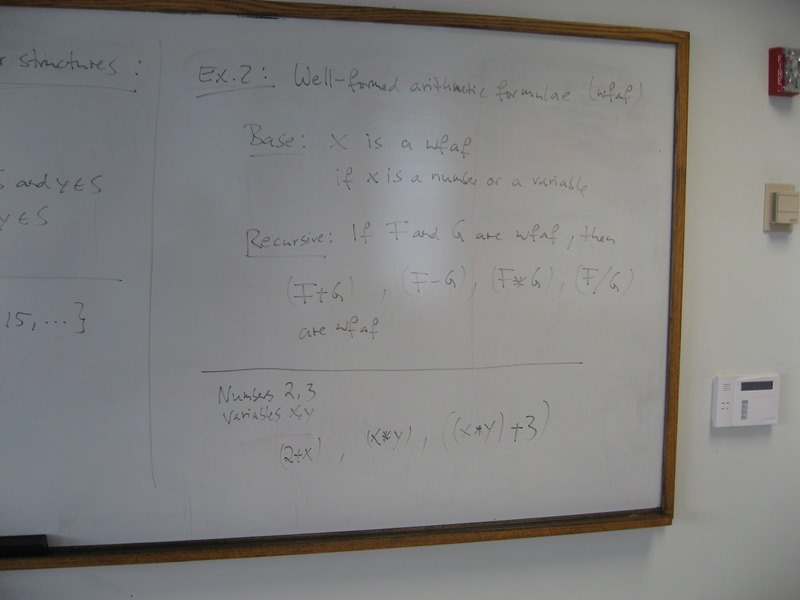 structures :
and y ∈ S
y ∈ S
15, ...}
Ex.2: Well-formed arithmetic formulae (wfaf)
Base: X is a wfaf
if x is a number or a variable
Recursive: If F and G are wfaf, then
(F+G) , (F-G), (F*G), (F/G)
are wfaf
Numbers 2, 3
Variables x,y
(2+x) , (x*y) , ((x*y)+3)